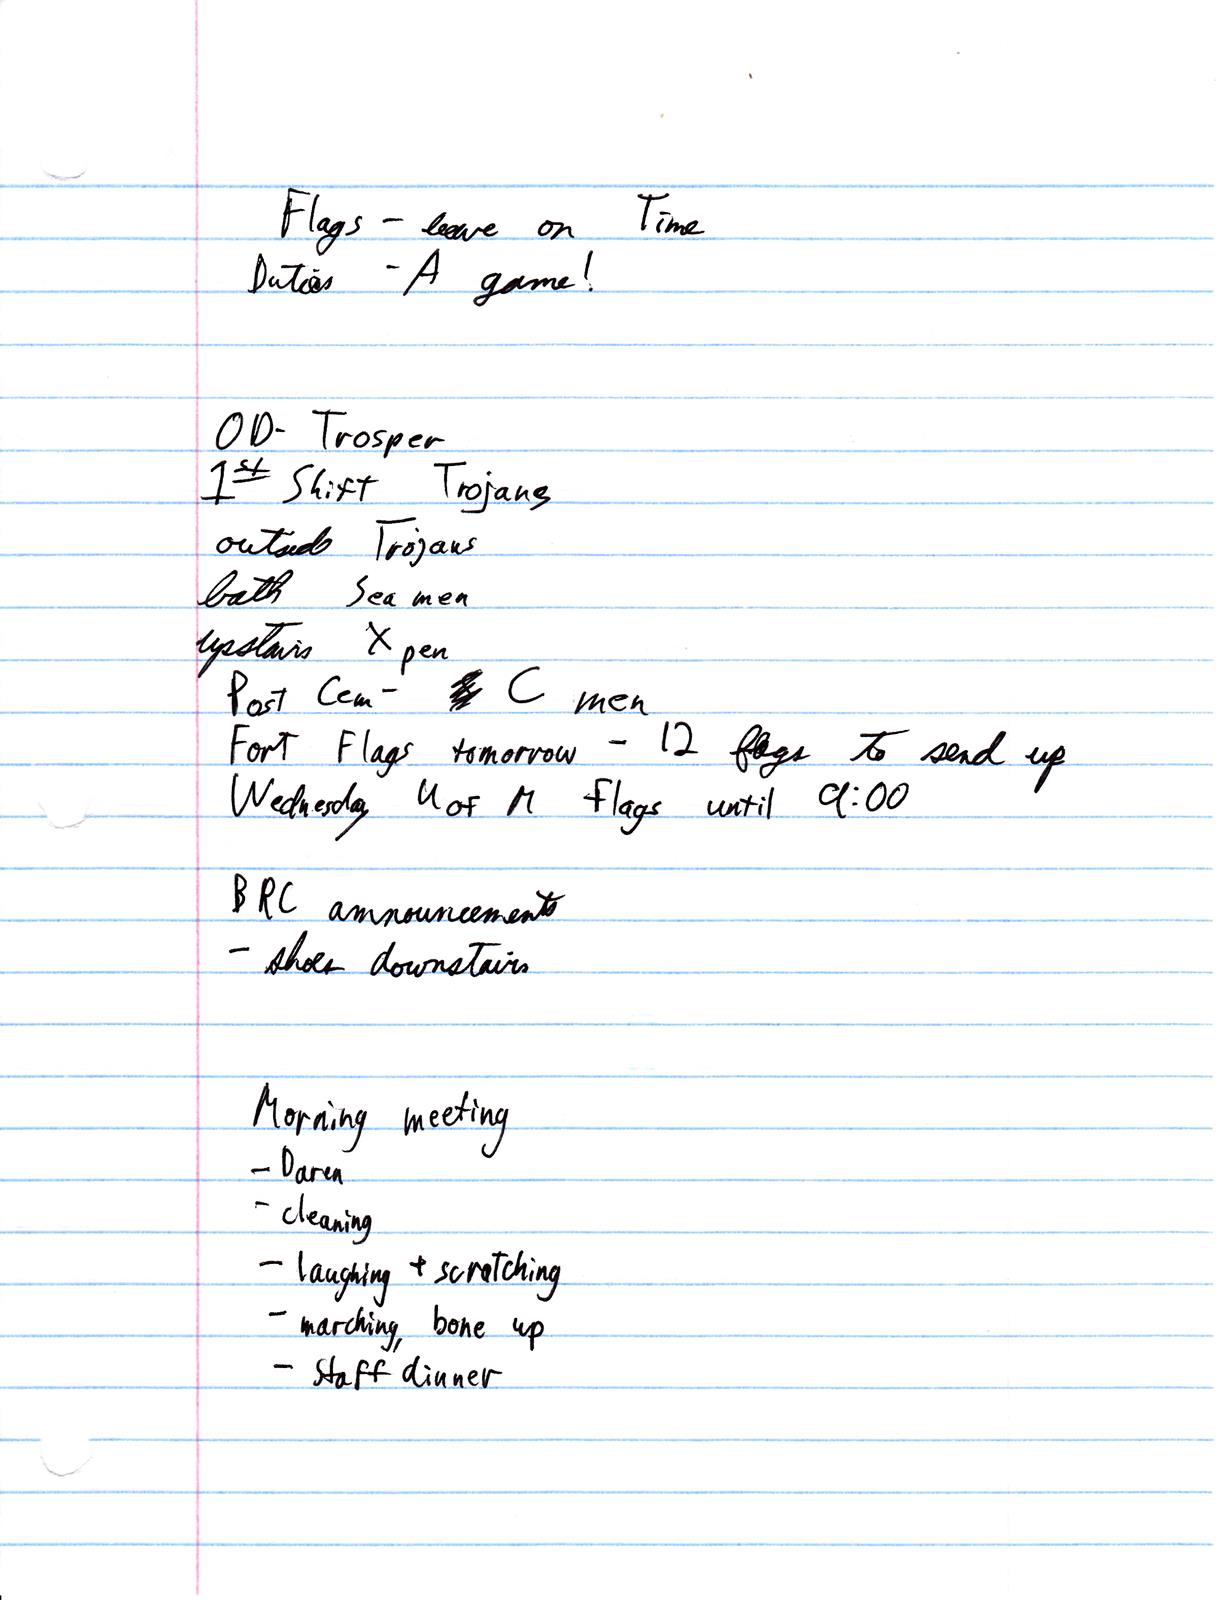 Flags - leave on Time
Duties - A game!
OD- Trosper
1st Shift Trojans
outside Trojans
bath Seamen
upstairs X pen
Post Cem- C men
Fort Flags tomorrow - 12 flags to send up
Wednesday U of M flags until 9:00
BRC announcements
- shoes downstairs
Morning meeting
- Daren
- cleaning
- laughing + scratching
- marching, bone up
- Staff dinner